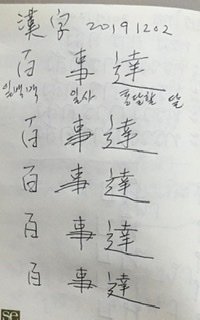 漢字 20191202
百 事 達
일백백 일사 통달할 달
百 事 達
百 事 達
百 事 達
百 事 達
se